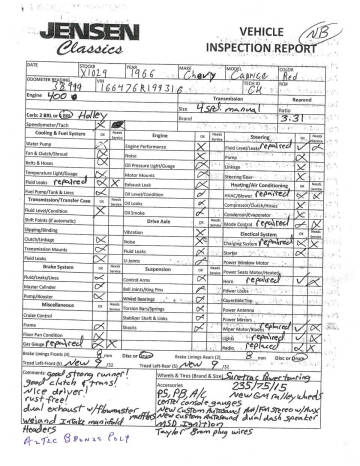 JENSEN
Classics
VEHICLE
INSPECTION REPORT
NB
DATE STOCK# YEAR MAKE MODEL COLOR
X1029 1966 Chevy Caprice Red
ODOMETER READING VIN TECH ID
166476R199316 CH
Engine Transmission Rearend
400 Size 4 spd. manual Ratio
Carb: 2 BRL or 4 BRL Holley Brand 3.31
Speedometer/Tach
Cooling & Fuel System OK Needs Service
Water Pump
Fan & Clutch/Shroud
Belts & Hoses
Temperature Light/Guage
Fluid Leaks repaired
Fuel Pump/Tank & Lines
Transmission/Transfer Case OK Needs Service
Fluid Level/Condition
Shift Points (if automatic)
Slipping/Binding
Clutch/Linkage
Transmission Mounts
Fluid Leaks
Brake System
Fluid/Leaks/Lines
Master Cylinder
Pump/Booster
Miscellaneous
Cruise Control
Frame
Floor Pan Condition
Gas Gauge repaired
Engine OK Needs Service
Engine Performance
Noise
Oil Pressure Light/Guage
Motor Mounts
Exhaust Leak
Fluid Level/Condition
Oil Leaks
Oil Smoke
Drive Axle
Vibration
Noise
Fluid Leaks
U-Joints
Suspension
Control Arms
Ball Joints/King Pins
Wheel Bearings
Torsion Bars/Springs
Stabilizer Shaft & Links
Shocks
Steering OK Needs Service
Fluid Level/Leaks repaired
Pump
Linkage
Steering/Gear
Heating/Air Conditioning
HVAC/Blower repaired
Compressor/Clutch/Hoses
Condenser/Evaporator
Mode Control repaired
Electrical System
Charging System repaired
Starter
Power Window Motor
Power Seats Motor/Heated
Horn repaired
Power Locks
Convertible Top
Power Antenna
Power Mirrors
Wiper Motor/Blades repaired
Lights repaired
Radio repaired
Brake Linings Fronts (4) mm Disc or Drum
Brake Linings Rears (2) 8 mm Disc or Drum
Tread Left-Front (5) New 9 /32
Tread Left-Rear (5) New 9 /32
Comments: good strong runner!
good clutch & trans!
Nice driver!
rust free!
dual exhaust w/flowmaster mufflers
Weiand Intake manifold
Headers
AZTEC BRONZE POLY
Wheels & Tires (Brand & Size)
235/75/15
Accessories
PS, PB, A/C New GM rallye wheels
center console gauges
New Custom Autosound AM/FM stereo w/Aux
New Custom Autosound dual dash speaker
MSD Ignition
Taylor 8mm plug wires